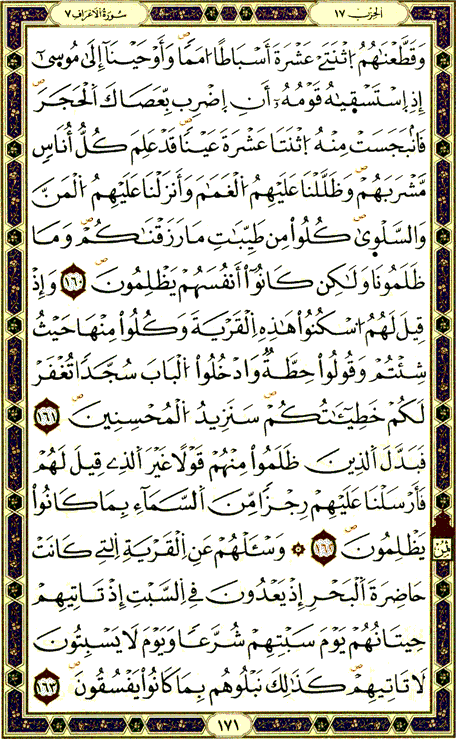 الحزب ١٧
سورة الأعراف ٧
وَقَطَّعْنَٰهُمُ اُ۪ثْنَتَےْ عَشْرَةَ أَسْبَاطاً اُمَماٗ وَأَوْحَيْنَآ إِلَىٰ مُوسَىٰٓ
إِذِ اِ۪سْتَسْقٜىٰهُ قَوْمُهُۥٓ أَنِ اِ۪ضْرِب بِّعَصَاكَ اَ۬لْحَجَرَ
فَانۢبَجَسَتْ مِنْهُ اُ۪ثْنَتَا عَشْرَةَ عَيْناٗ قَدْ عَلِمَ كُلُّ أُنَاسٖ
مَّشْرَبَهُمْ وَظَلَّلْنَا عَلَيْهِمُ اُ۬لْغَمَٰمَ وَأَنزَلْنَا عَلَيْهِمُ اُ۬لْمَنَّ
وَالسَّلْو۪ىٰ كُلُواْ مِن طَيِّبَٰتِ مَا رَزَقْنَٰكُمْ وَمَا
ظَلَمُونَا وَلَٰكِن كَانُوٓاْ أَنفُسَهُمْ يَظْلِمُونَ ١٦٠ وَإِذْ
قِيلَ لَهُمُ اُ۟سْكُنُواْ هَٰذِهِ اِ۬لْقَرْيَةَ وَكُلُواْ مِنْهَا حَيْثُ
شِئْتُمْ وَقُولُواْ حِطَّةٌ وَادْخُلُواْ اُ۬لْبَابَ سُجَّداٗ تُغْفَرْ
لَكُمْ خَطِيٓـَٰٔتُكُمْ سَنَزِيدُ اُ۬لْمُحْسِنِينَ ١٦١
فَبَدَّلَ اَ۬لذِينَ ظَلَمُواْ مِنْهُمْ قَوْلًا غَيْرَ اَ۬لذِے قِيلَ لَهُمْ
فَأَرْسَلْنَا عَلَيْهِمْ رِجْزاٗ مِّنَ اَ۬لسَّمَآءِ بِمَا كَانُواْ
يَظْلِمُونَ ١٦٢ وَسْـَٔلْهُمْ عَنِ اِ۬لْقَرْيَةِ اِ۬لتِے كَانَتْ
حَاضِرَةَ اَ۬لْبَحْرِ إِذْ يَعْدُونَ فِے اِ۬لسَّبْتِ إِذْ تَاتِيهِمْ
حِيتَانُهُمْ يَوْمَ سَبْتِهِمْ شُرَّعاٗ وَيَوْمَ لَا يَسْبِتُونَ
لَا تَاتِيهِمْ كَذَٰلِكَ نَبْلُوهُم بِمَا كَانُواْ يَفْسُقُونَ ١٦٣
ثمن
١٧١